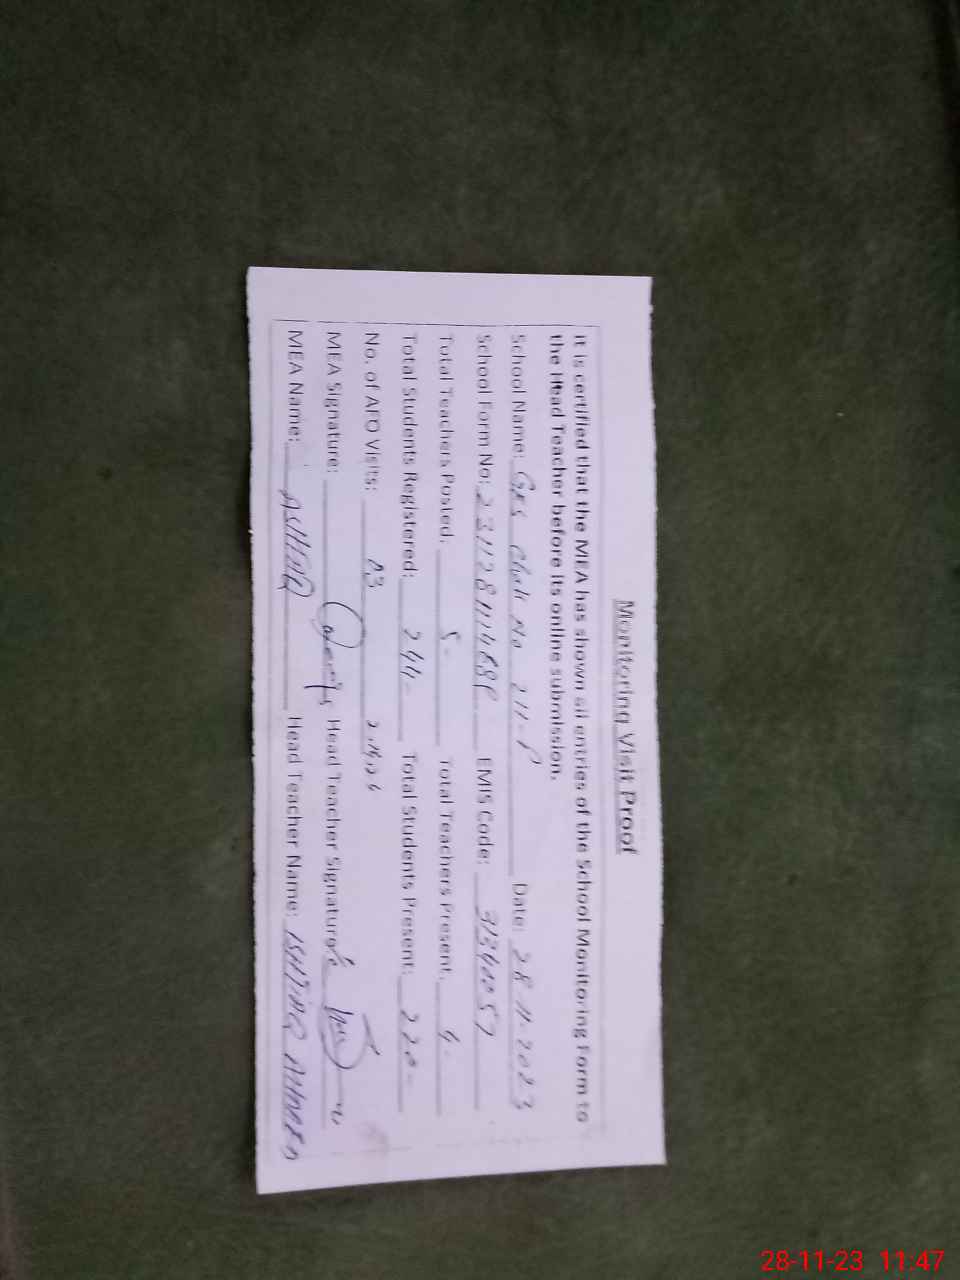 Monitoring Visit Proof
It is certified that the MEA has shown all entries of the School Monitoring Form to
the Head Teacher before its online submission.
School Name: GES Chak No 211-P Date: 28.11.2023
School Form No: EMIS Code:
Total Teachers Posted: 5- Total Teachers Present: 4-
Total Students Registered: 244- Total Students Present: 220-
No. of AEO Visits: 03
MEA Signature: Head Teacher Signature:
MEA Name: ASHFAQ Head Teacher Name: ISHTIAQ AHMAD
28-11-23 11:47